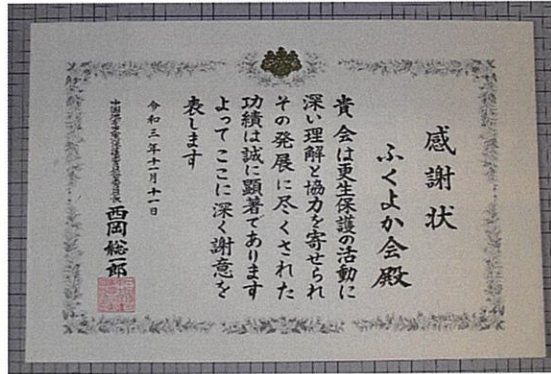 感謝状
ふくよか会殿
貴会は更生保護の活動に
深い理解と協力を寄せられ
その発展に尽くされた
功績は誠に顕著であります
よってここに深く謝意を
表します
令和三年十一月十一日
中国地方更生保護委員会委員長
西岡総一郎